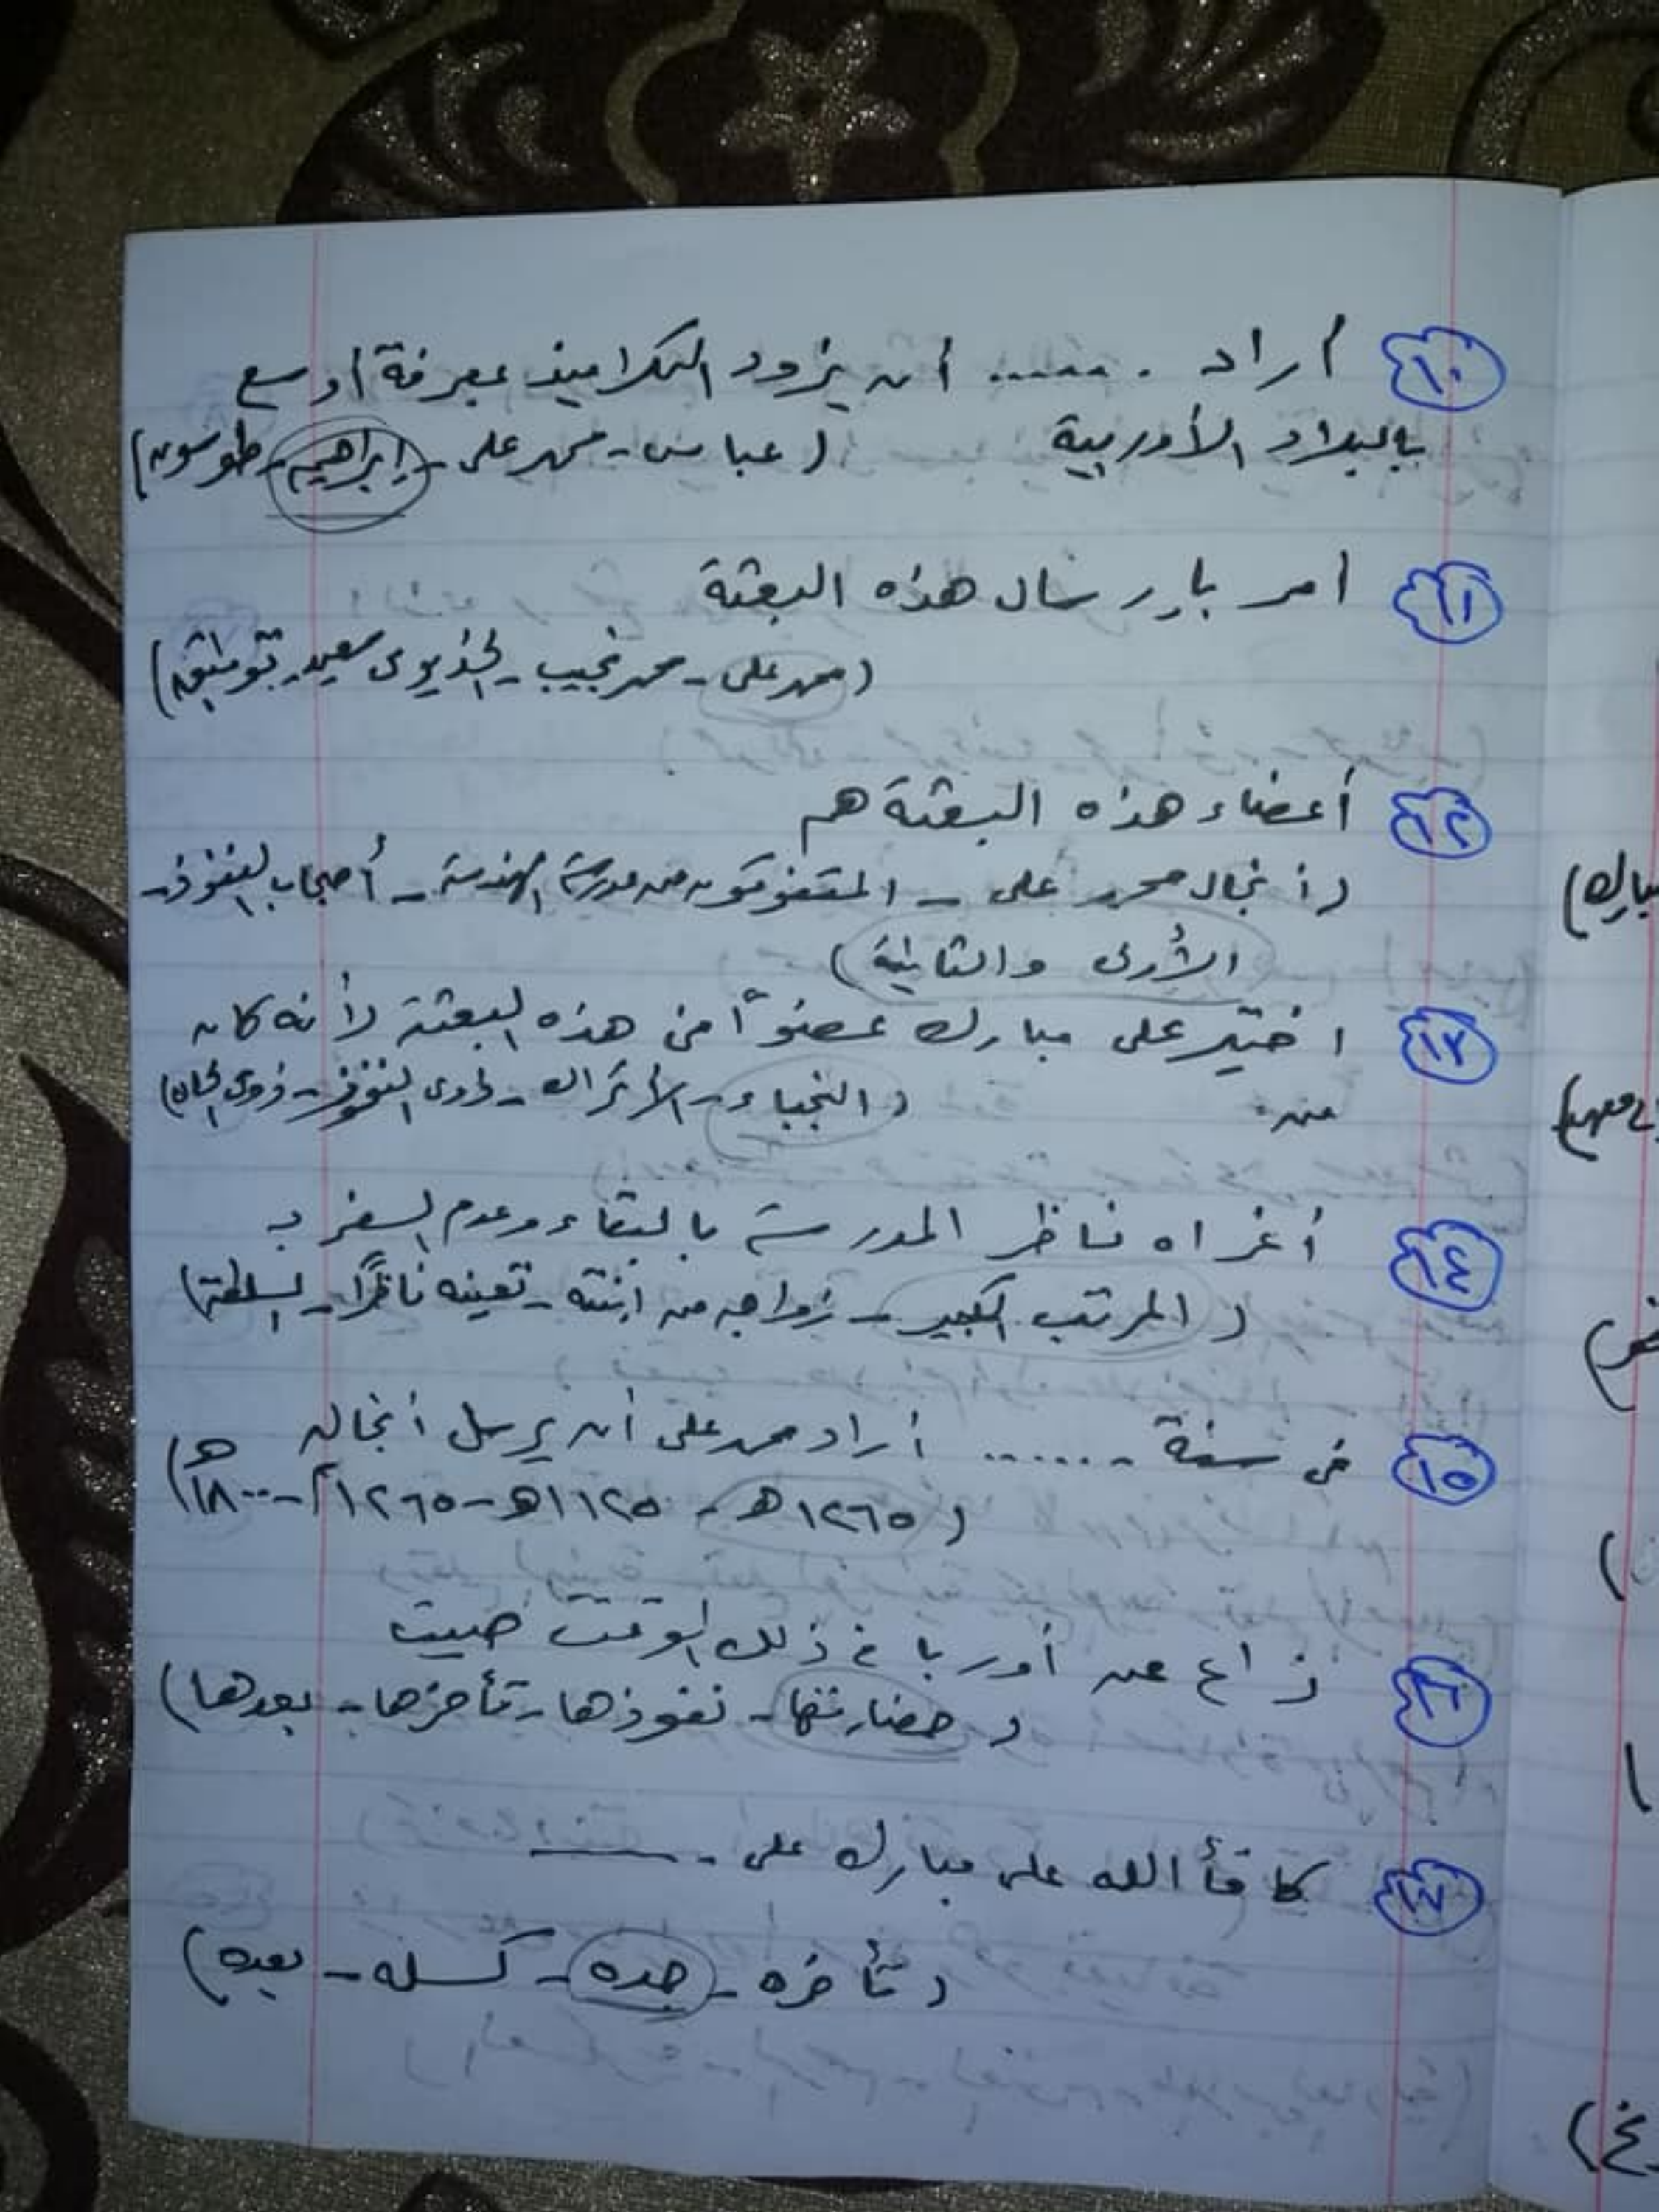 ١٠ أراد ...... أن يزود التلاميذ بمعرفة أوسع
بالبلاد الأوربية (عباس - محمد على - إبراهيم - طوسون)
١١ أمر بإرسال هذه البعثة
(محمد على - محمد نجيب - الخذيوى سعيد - توفيق)
١٢ أعضاء هذه البعثة هم
(أنجال محمد على - المتفوقون من مدرسة الهندسة - أصحاب النفوذ -
الأولى والثانية)
١٣ اختير على مبارك عضوًا من هذه البعثة لأنه كان
من (النجباء - الأتراك - ذوى النفوذ - ذوى الجاه)
١٤ أغراه ناظر المدرسة بالبقاء وعدم السفر بـ
(المرتب الكبير - زواجه من ابنته - تعينه ناظرًا - السلطة)
١٥ فى سنة ...... أراد محمد على أن يرسل أنجاله
(١٢٦٥هـ - ١١٢٥هـ - ١٢٦٥م - ١٨٠٠هـ)
ذاع عن أوربا فى ذلك الوقت صيت
(حضارتها - نفوذها - تأخرها - بعدها)
كافأ الله على مبارك على
(تأخره - جده - كسله - بعده)